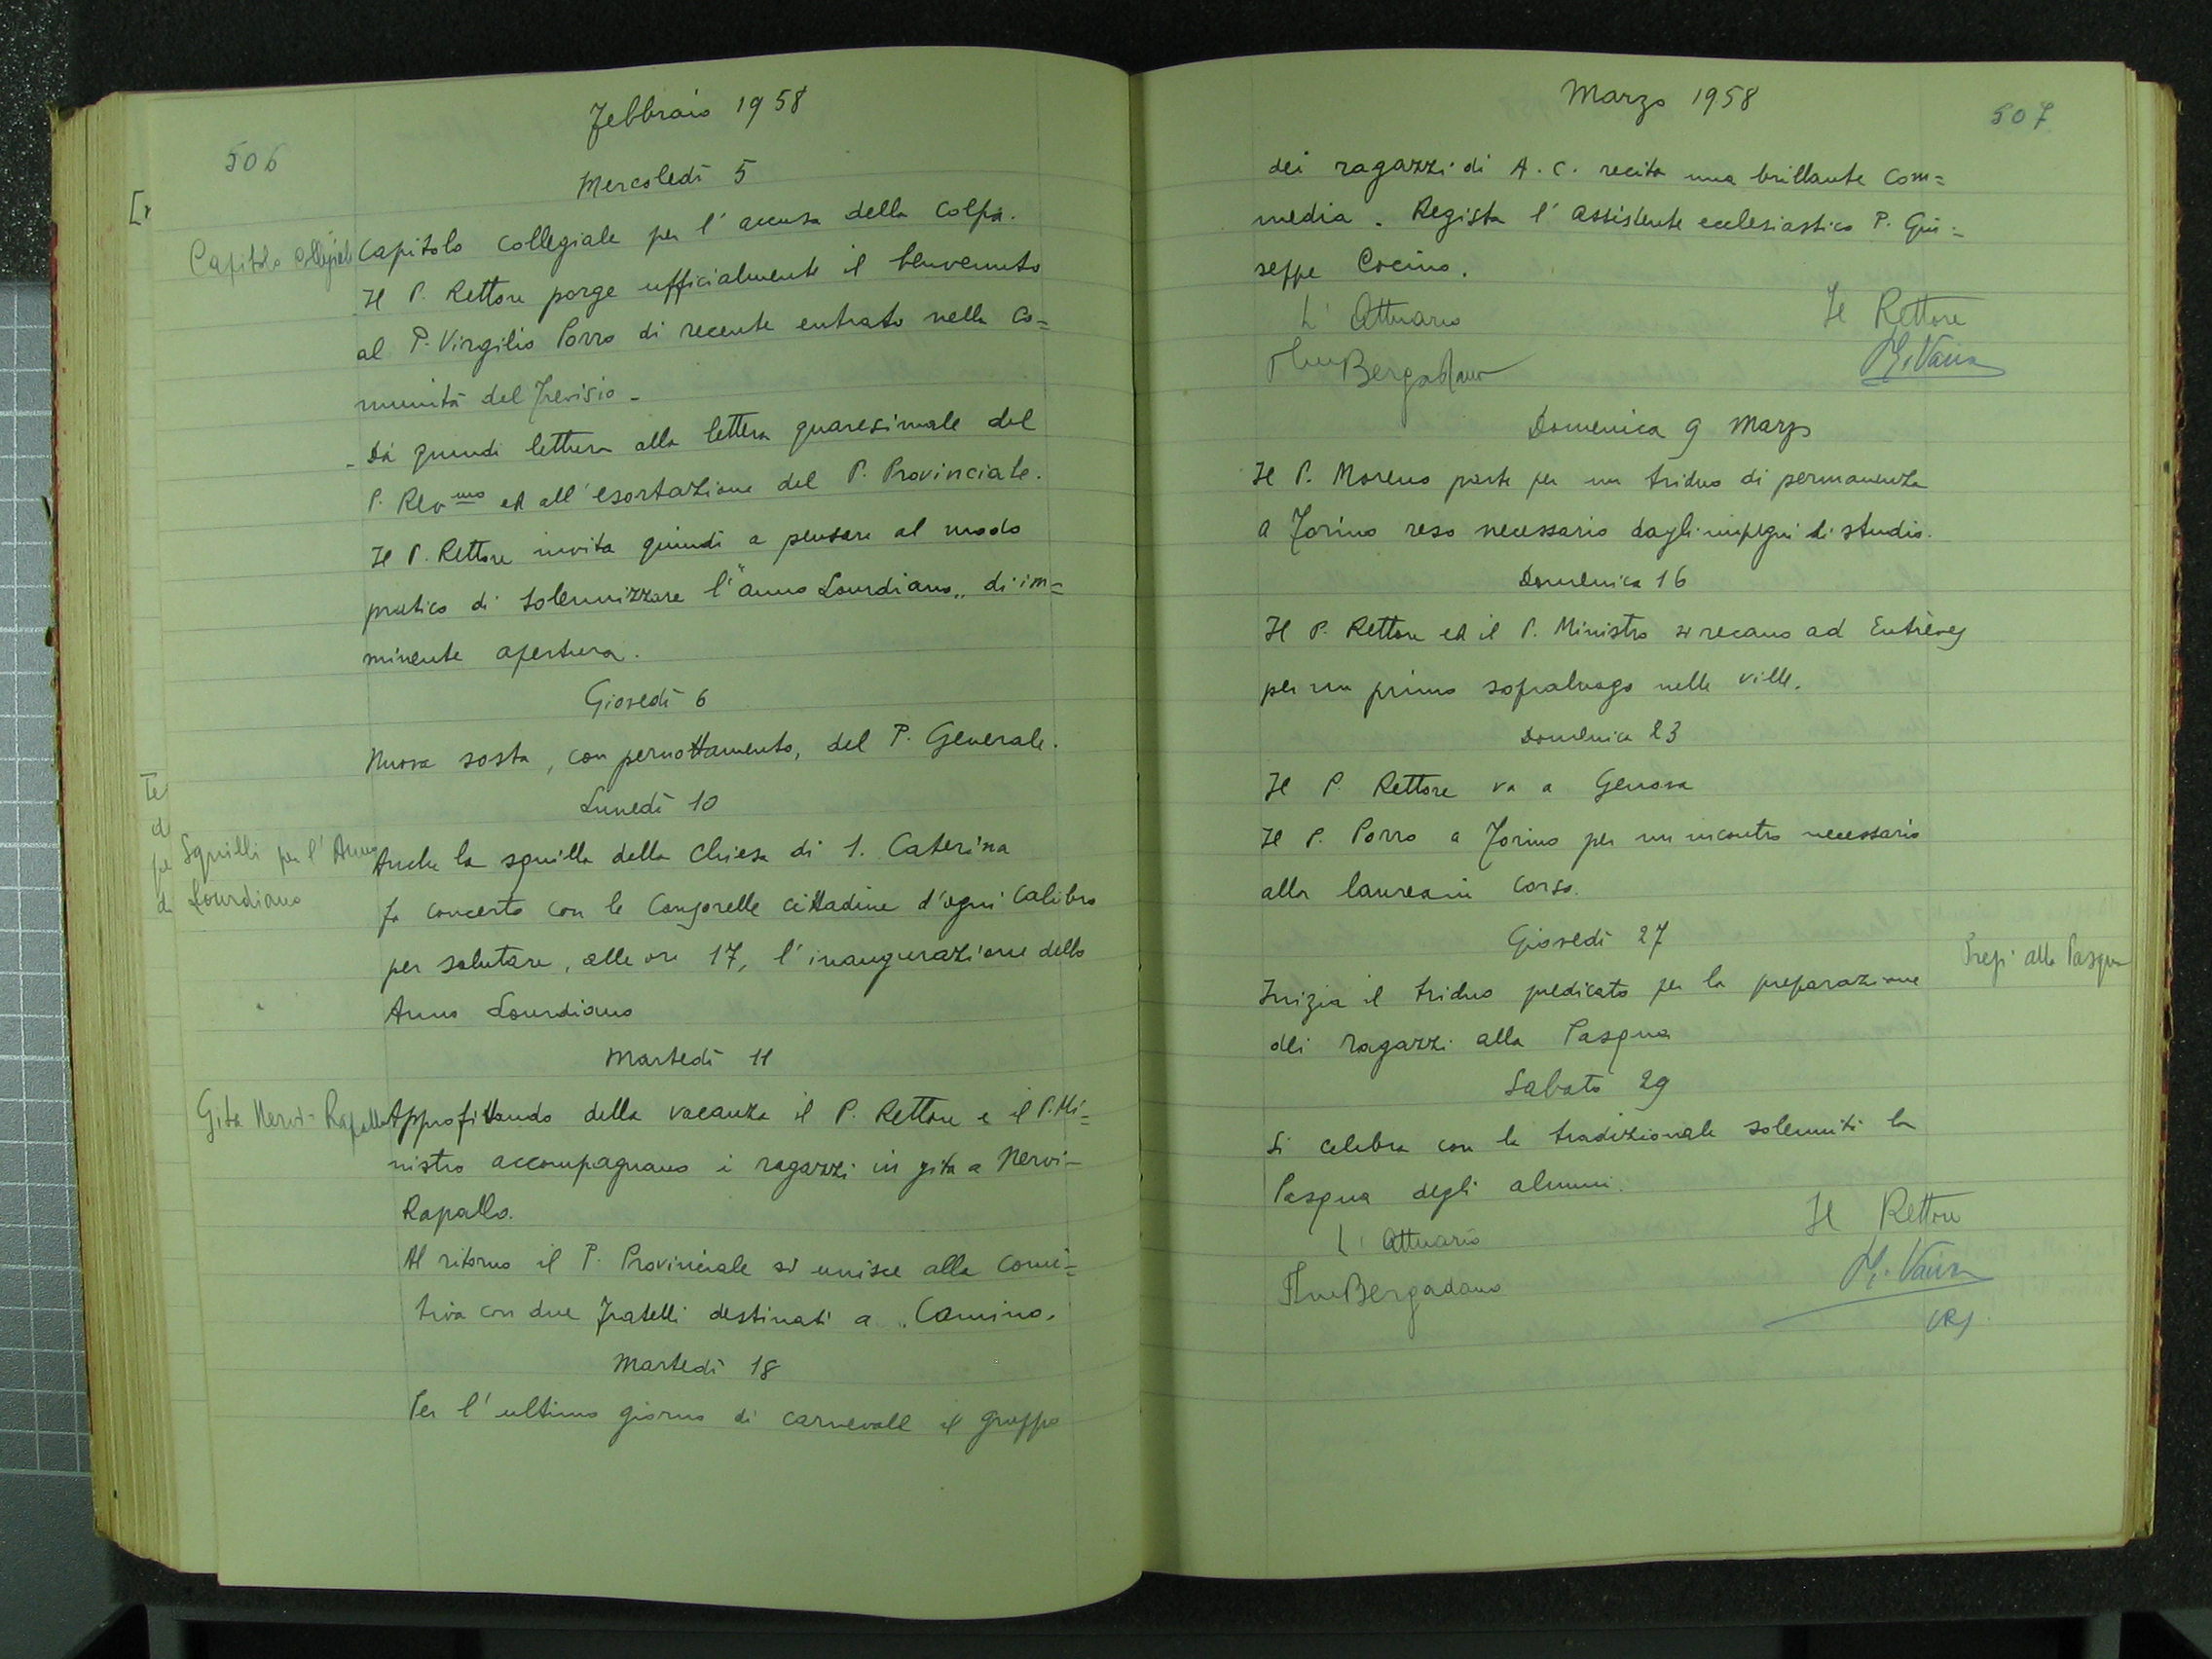 506
Febbraio 1958
Mercoledì 5
Capitolo Collegiale
Capitolo collegiale per l'accusa della colpa.
Il P. Rettore porge ufficialmente il benvenuto
al P. Virgilio Porro di recente entrato nella co=
munità del Trevisio -
- Dà quindi lettura alla lettera quaresimale del
P. Rev.mo ed all'esortazione del P. Provinciale.
Il P. Rettore invita quindi a pensare al modo
pratico di solennizzare l'"anno Lourdiano" di im=
minente apertura.
Giovedì 6
Nuova sosta, con pernottamento, del P. Generale.
Lunedì 10
Squilli per l'Anno
Lourdiano
Anche la squilla della Chiesa di S. Caterina
fa concerto con le consorelle cittadine d'ogni calibro
per salutare, alle ore 17, l'inaugurazione dello
Anno Lourdiano
Martedì 11
Gita Nervi-Rapallo
Approfittando della vacanza il P. Rettore e il P. Mi=
nistro accompagnano i ragazzi in gita a Nervi-
Rapallo.
Al ritorno il P. Provinciale si unisce alla comi=
tiva con due fratelli destinati a Camino.
Martedì 18
Per l'ultimo giorno di carnevale il gruppo
Marzo 1958
507
dei ragazzi di A. C. recita una brillante com=
media. Regista l'assistente ecclesiastico P. Giu=
seppe Cocino.
L'Attuario
Il Rettore
Bergadano
Vaira
Domenica 9 Marzo
Il P. Moreno parte per un triduo di permanenza
a Torino reso necessario dagli impegni di studio.
Domenica 16
Il P. Rettore ed il P. Ministro si recano ad Entrèves
per un primo sopraluogo nelle ville.
Domenica 23
Il P. Rettore va a Genova
Il P. Porro a Torino per un incontro necessario
alla laurea in corso.
Giovedì 27
Prep. alla Pasqua
Inizia il triduo predicato per la preparazione
dei ragazzi alla Pasqua
Sabato 29
Si celebra con la tradizionale solennità la
Pasqua degli alunni.
L'Attuario
Il Rettore
Bergadano
Vaira
CRS